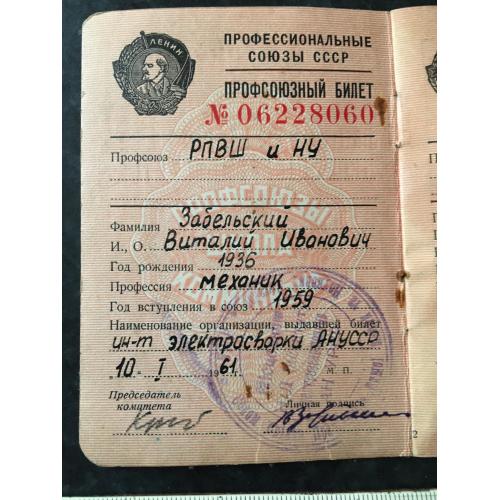 ЛЕНИН
ПРОФЕССИОНАЛЬНЫЕ
СОЮЗЫ СССР
ПРОФСОЮЗНЫЙ БИЛЕТ
№ 06228060
Профсоюз РПВШ и НУ
ПРОФСОЮЗЫ
ШКОЛА
КОММУНИЗМА
Фамилия Забельский
И., О. Виталий Иванович
Год рождения 1936
Профессия механик
Год вступления в союз 1959
Наименование организации, выдавшей билет
ин-т электросварки АНУССР
10. I 1961. М. П.
Председатель комитета
Личная подпись
2